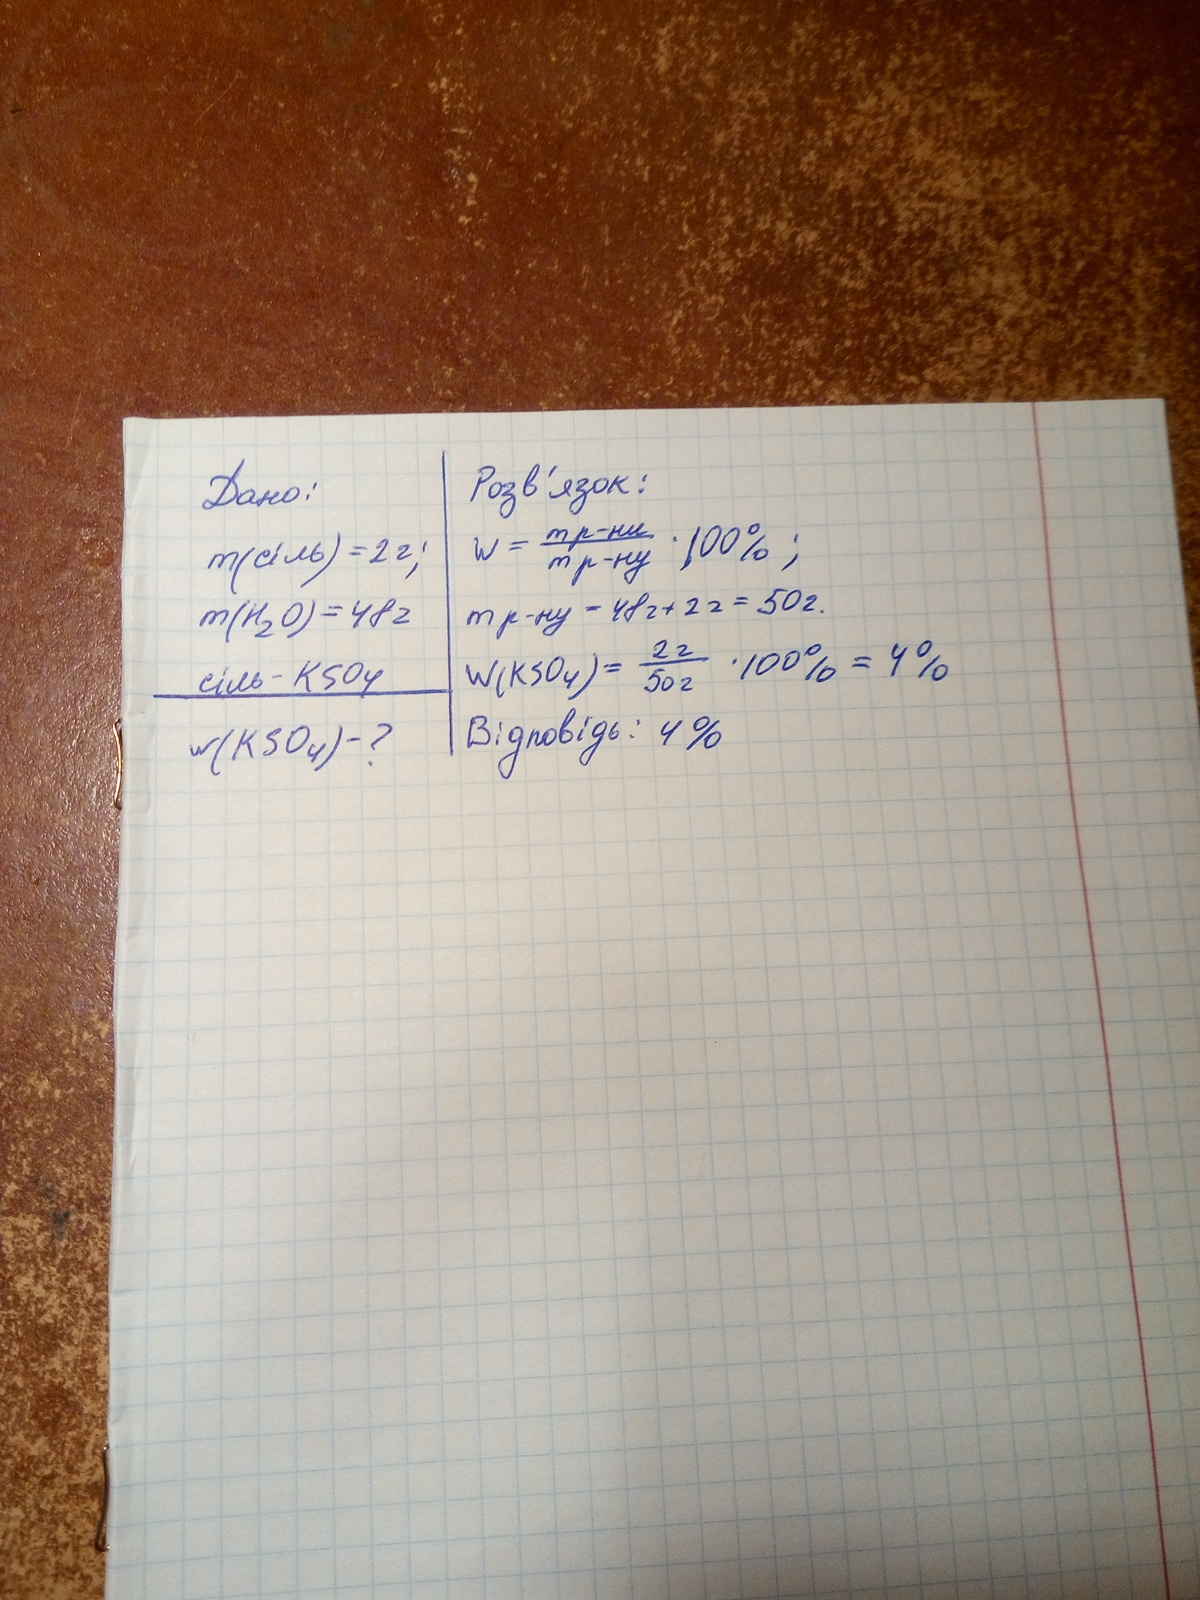 Дано:
m(сіль) = 2г;
m(H2O) = 48г
сіль - KSO4
w(KSO4) - ?
Розв'язок:
W = m р-ни / m р-ну · 100% ;
m р-ну = 48г + 2г = 50г.
W(KSO4) = 2г / 50г · 100% = 4%
Відповідь: 4%